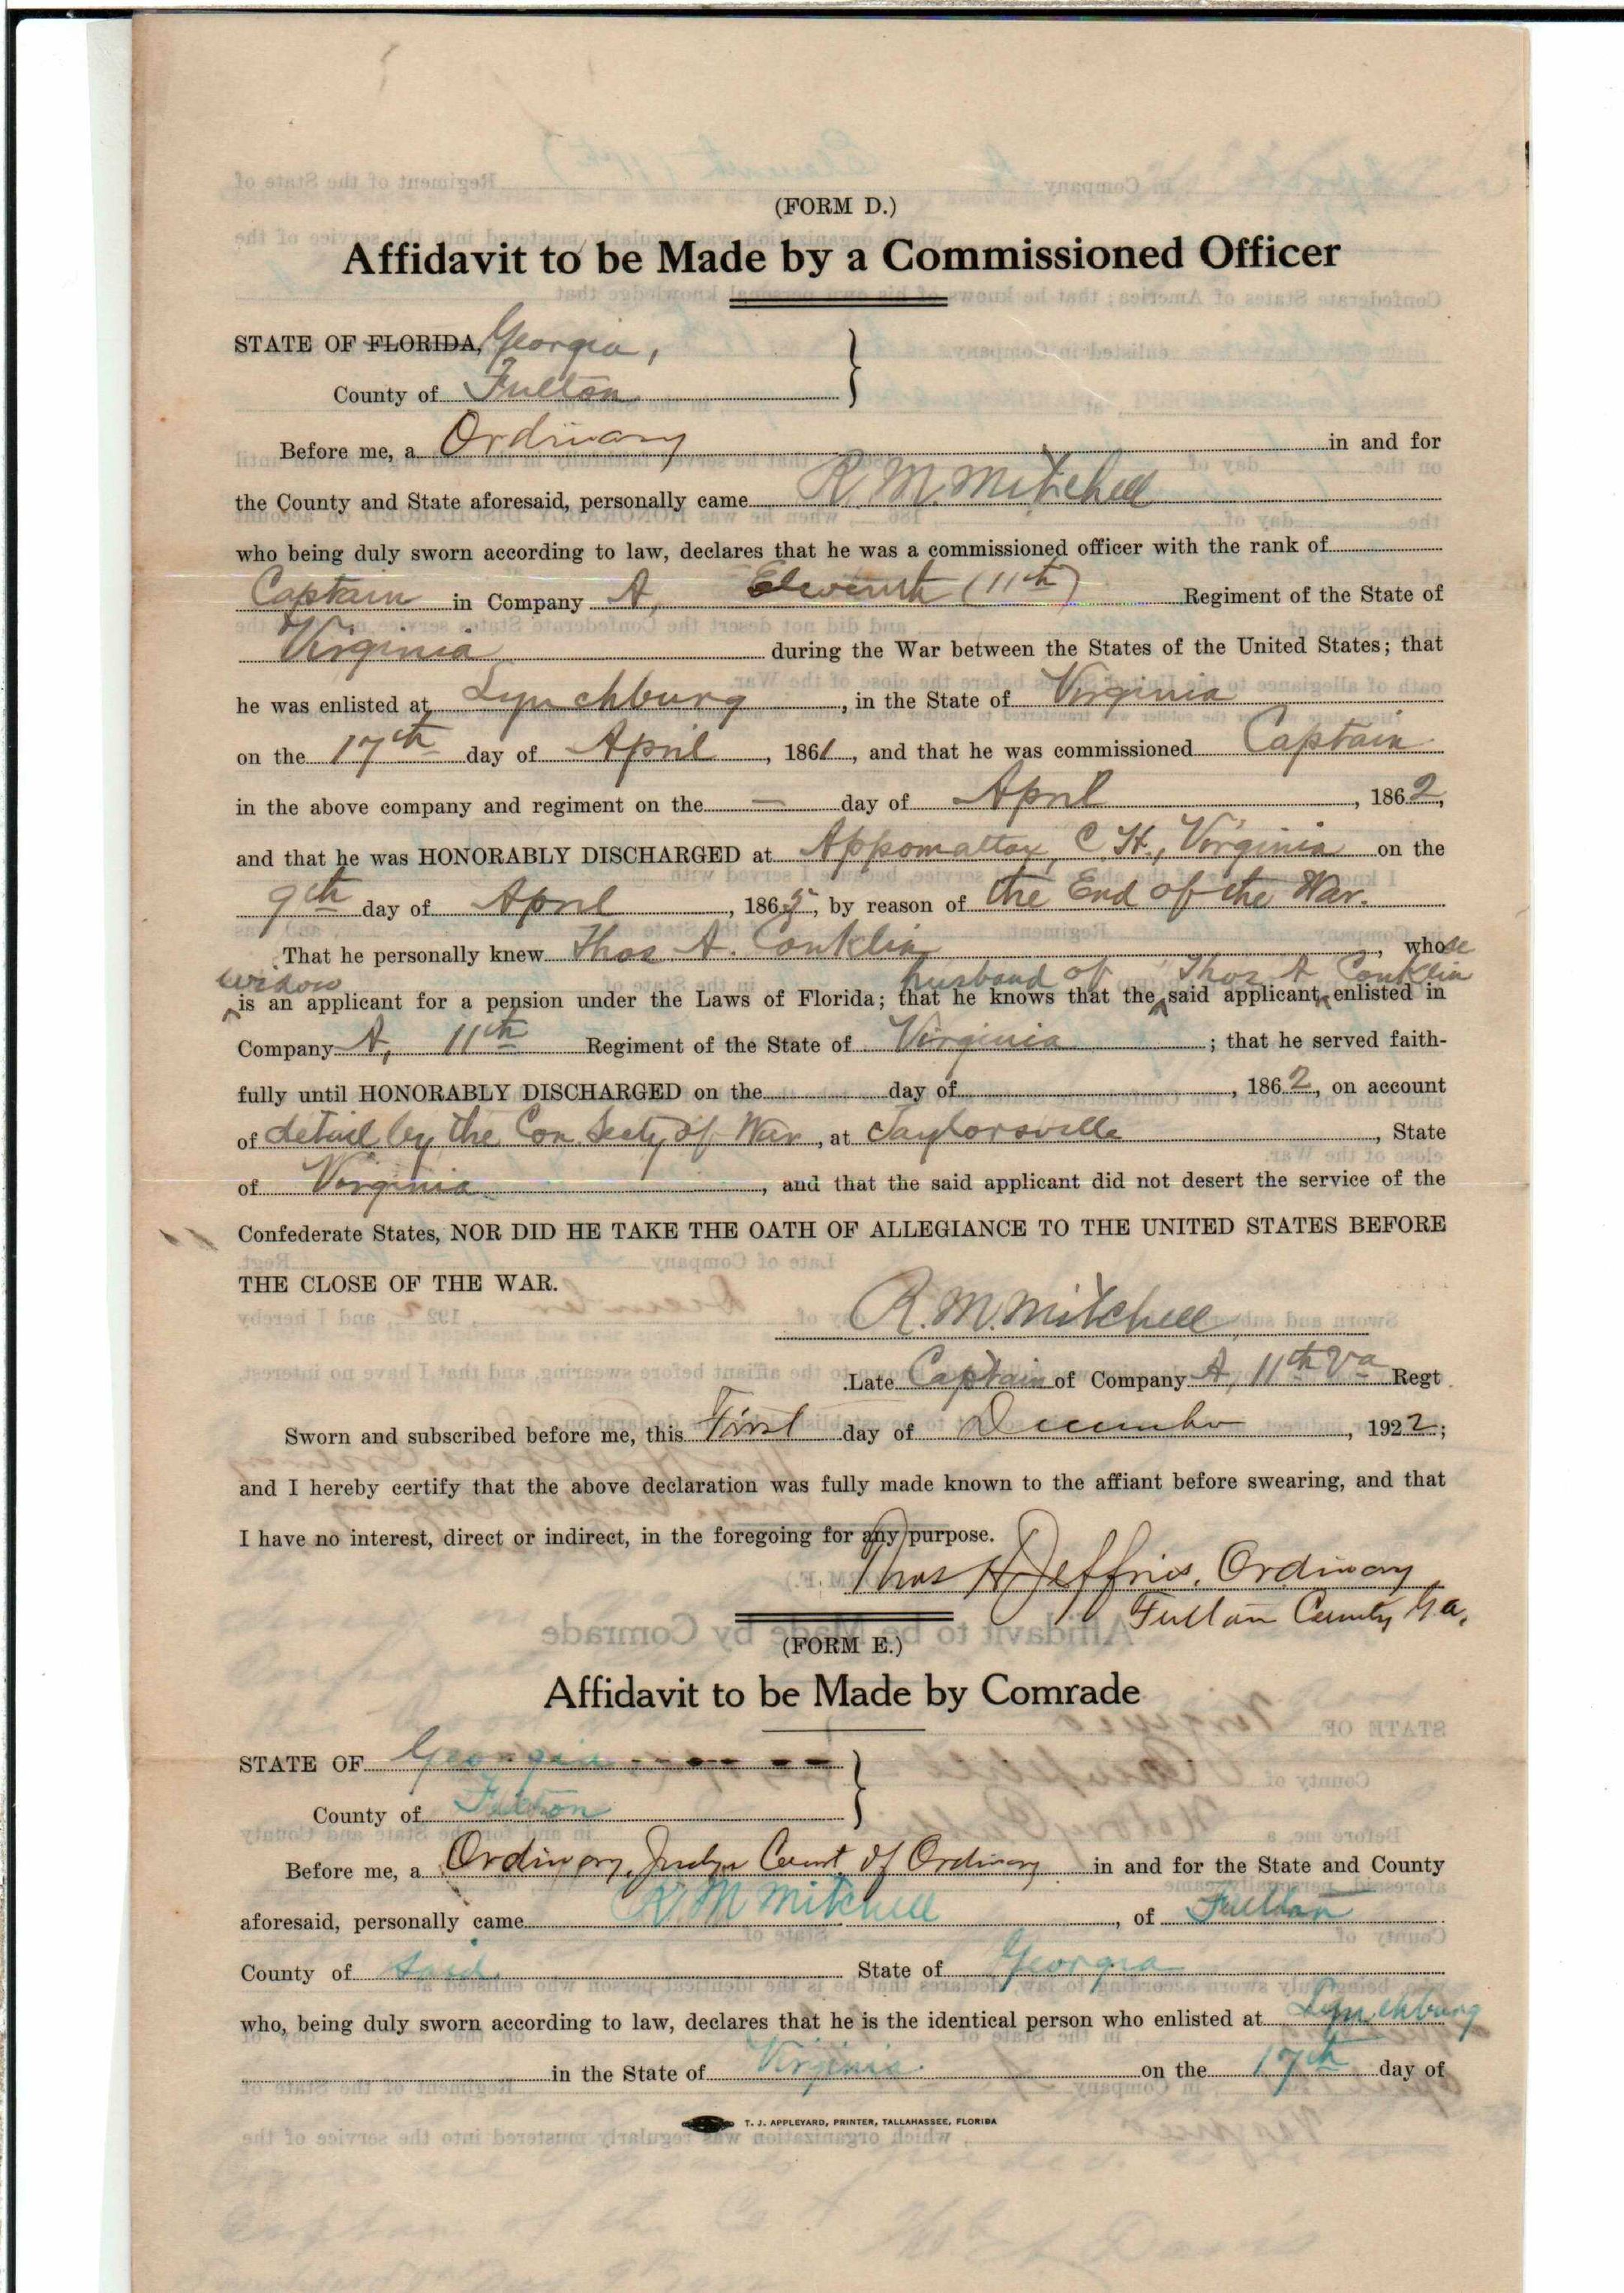 (FORM D.)
Affidavit to be Made by a Commissioned Officer
STATE OF FLORIDA, Georgia,
County of Fulton
Before me, a Ordinary in and for
the County and State aforesaid, personally came R. M. Mitchell
who being duly sworn according to law, declares that he was a commissioned officer with the rank of
Captain in Company A, Eleventh (11th) Regiment of the State of
Virginia during the War between the States of the United States; that
he was enlisted at Lynchburg, in the State of Virginia
on the 17th day of April, 1861, and that he was commissioned Captain
in the above company and regiment on the — day of April, 1862,
and that he was HONORABLY DISCHARGED at Appomattox, C. H., Virginia on the
9th day of April, 1865, by reason of the End of the War.
That he personally knew Thos A. Conklin, whose
widow husband of Thos A Conklin
is an applicant for a pension under the Laws of Florida; that he knows that the said applicant, enlisted in
Company A, 11th Regiment of the State of Virginia; that he served faith-
fully until HONORABLY DISCHARGED on the day of, 1862, on account
of detail by the Con Secty of War, at Taylorsville, State
of Virginia, and that the said applicant did not desert the service of the
Confederate States, NOR DID HE TAKE THE OATH OF ALLEGIANCE TO THE UNITED STATES BEFORE
THE CLOSE OF THE WAR.
R. M. Mitchell
Late Captain of Company A, 11th Va Regt.
Sworn and subscribed before me, this First day of December, 1922;
and I hereby certify that the above declaration was fully made known to the affiant before swearing, and that
I have no interest, direct or indirect, in the foregoing for any purpose.
Thos H Jeffries, Ordinary
Fulton County Ga.
(FORM E.)
Affidavit to be Made by Comrade
STATE OF Georgia
County of Fulton
Before me, a Ordinary, Judge Court of Ordinary in and for the State and County
aforesaid, personally came R. M Mitchell, of Fulton
County of Said State of Georgia
who, being duly sworn according to law, declares that he is the identical person who enlisted at Lynchburg
in the State of Virginia on the 17th day of
T. J. APPLEYARD, PRINTER, TALLAHASSEE, FLORIDA